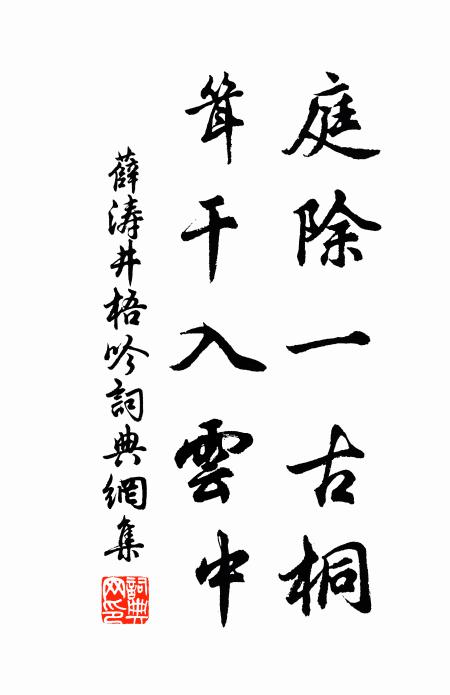 庭除一古桐
耸干入雲中
薛涛井梧吟詞典網集
詞典
网印